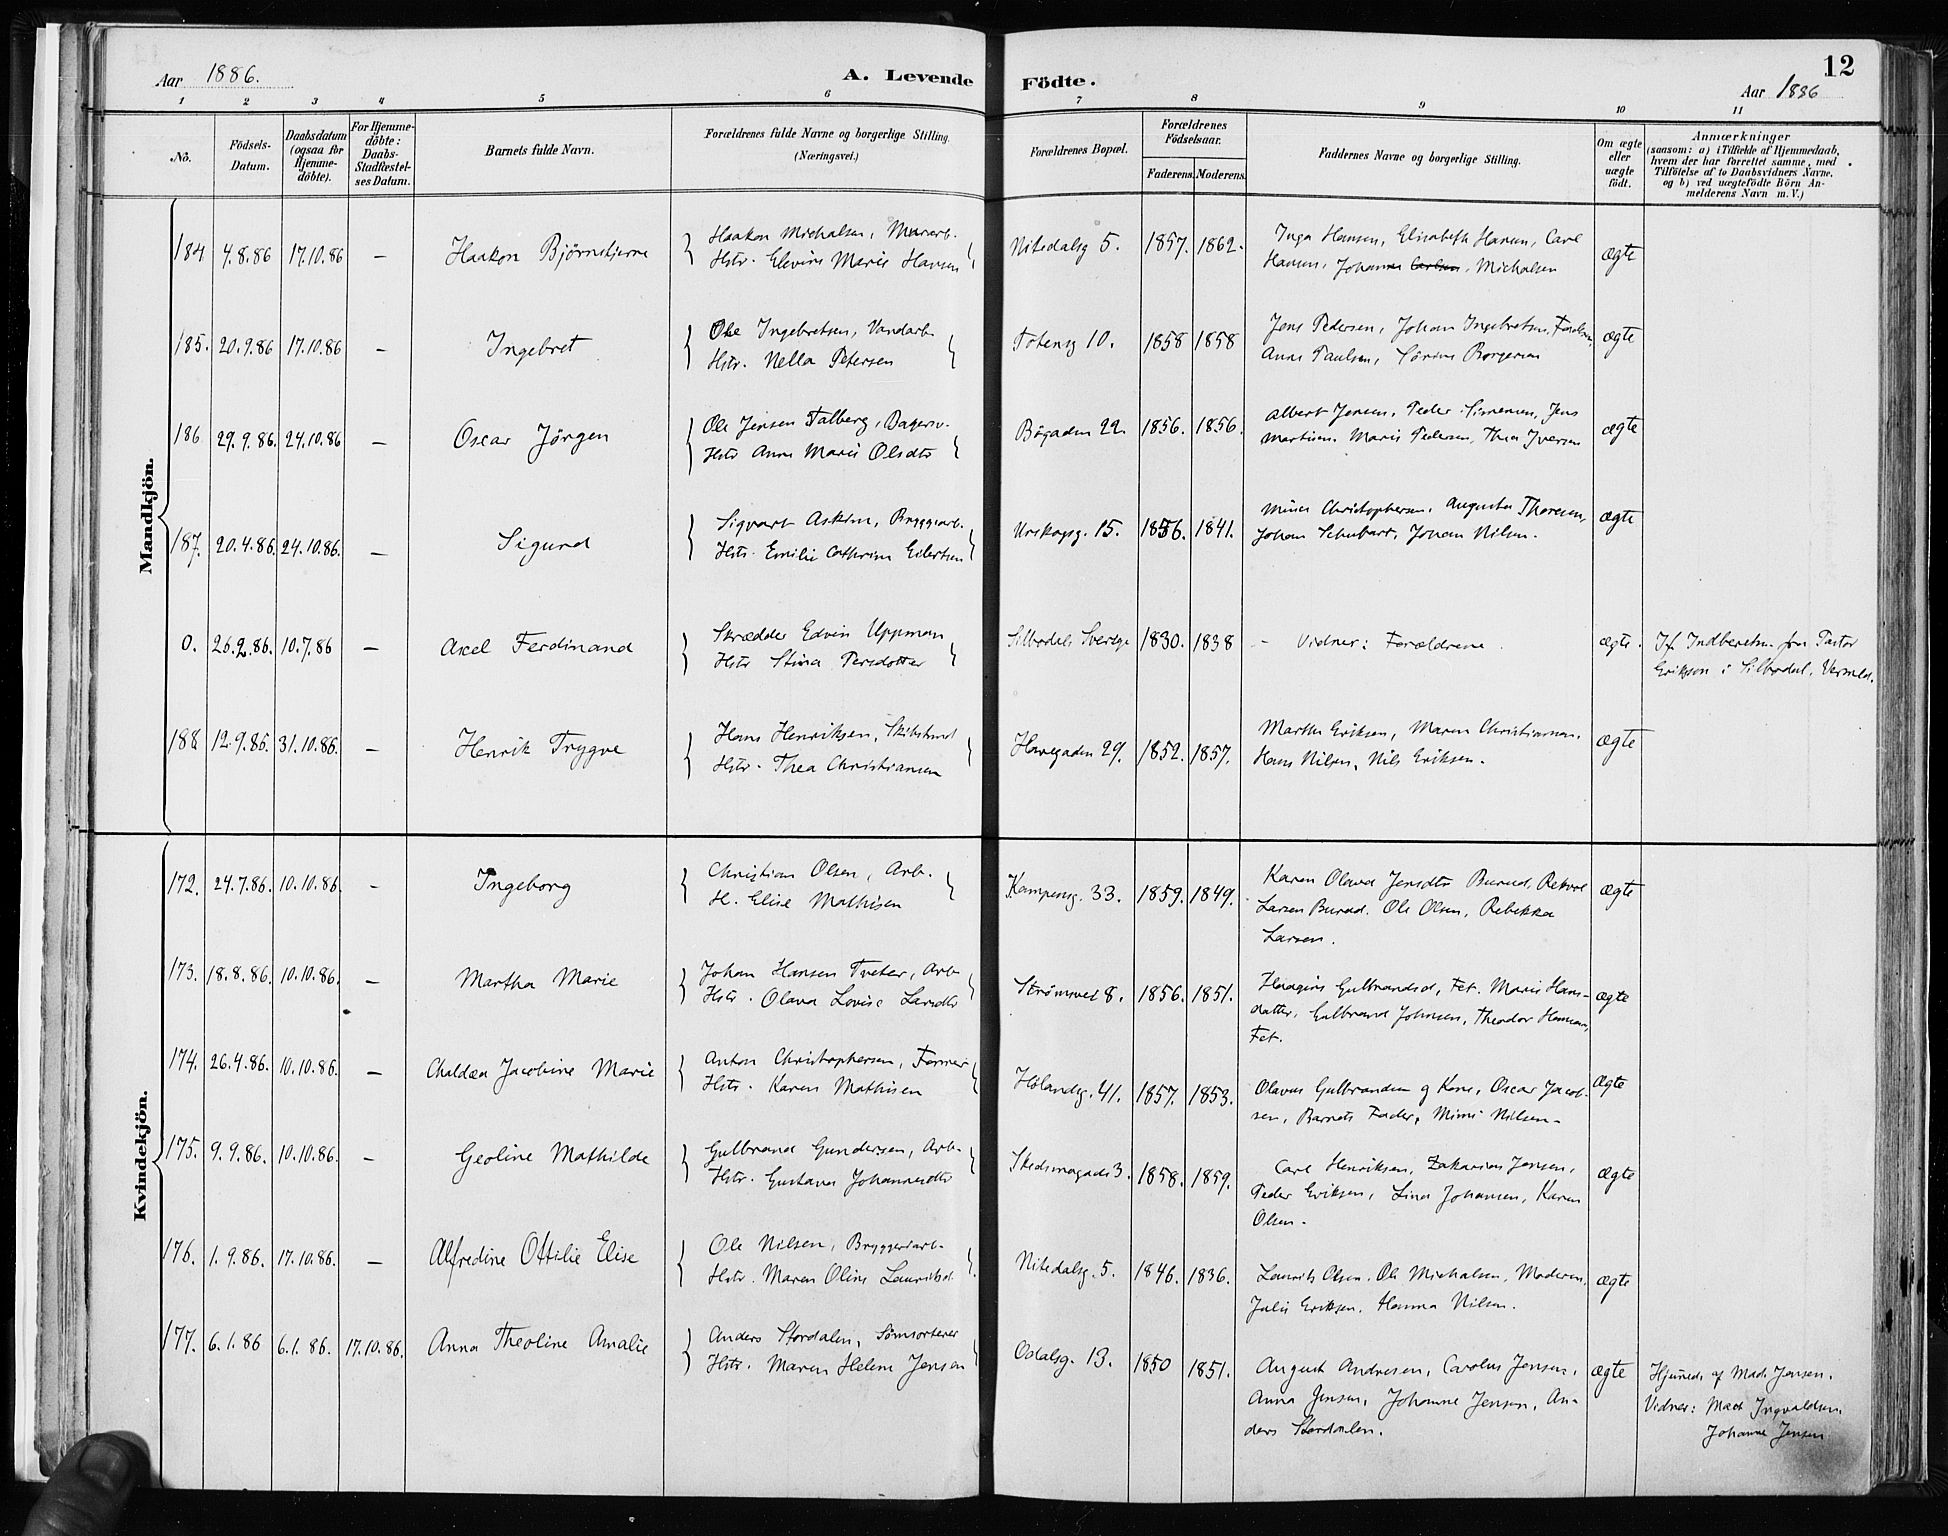 Aar 1886.
A. Levende Födte.
12
Aar 1886
1 2 3 4 5 6 7 8 9 10 11
No.
Födsels-
Datum.
Daabsdatum
(ogsaa for
Hjemme-
döbte).
For Hjemme-
döbte:
Daabs-
Stadfæstel-
ses Datum.
Barnets fulde Navn.
Forældrenes fulde Navne og borgerlige Stilling.
(Næringsvei.)
Forældrenes Bopæl.
Forældrenes
Födselsaar.
Faderens. Moderens.
Faddernes Navne og borgerlige Stilling.
Om ægte
eller
uægte
födt.
Anmærkninger
(saasom: a) i Tilfælde af Hjemmedaab,
hvem der har forrettet samme, med
Tilföielse af to Daabsvidners Navne.
og b) ved uægtefödte Börn An-
melderens Navn m. V.)
Mandkjön.
184 4.8.86 17.10.86 — Haakon Bjørnstjerne
Haakon Michalsen, Murarb.
Hstr. Elevine Marie Hansen
Nitedalsg 5. 1857. 1862.
Inga Hansen, Elisabeth Hansen, Carl
Hansen, Johannes Carlsen, Michalsen
ægte
185. 20.9.86 17.10.86 — Ingebret
Ole Ingebretsen, Vandarb.
Hstr. Nella Petersen
Totensg 10. 1858 1858
Jens Pedersen, Johan Ingebretsen, Faderen,
Anne Paulsen, Borgersen
ægte
186 29.9.86. 24.10.86 — Oscar Jörgen
Ole Jensen Falberg, Bagersv.
Hstr Anne Marie Olsdtr
Bøgaden 22. 1856. 1856.
Albert Jensen, Peder Simensen, Jens
Martinsen. Marie Pedersen, Thea Iversen
ægte
187. 20.4.86. 24.10.86. — Sigurd
Sigvart Askim, Bryggearb.
Hstr. Emilie Cathrine Eilertsen
Urskogsg. 15. 1856. 1841.
Christophersen, Augusta Thoresen,
Johan Schubart, Johan Nilsen.
ægte
0. 26.2.86. 10.7.86 — Axel Ferdinand
Skrædder Edvin Uppman
Hstr Stina Persdotter
Silbodal Sverige 1830. 1838
— Vidner: Forældrene.
ægte.
Jf. Indberetn. fra Pastor
Erikson i Silbodal, Vermld.
188 12.9.86. 31.10.86. — Henrik Trygve
Hans Henriksen, Skibstmd
Hstr. Thea Christiansen
Havegaden 29. 1852. 1857.
Martha Eriksen, Maren Christiansen,
Hans Nilsen, Nils Eriksen.
ægte
Kvindekjön.
172. 24.7.86. 10.10.86. — Ingeborg
Christian Olsen, Arb.
H. Elise Mathisen
Kampensg. 33. 1859. 1849.
Karen Olava Jensdtr Burud,
Larsen Burud. Ole Olsen, Rebekka
Larsen.
ægte
173. 18.8.86. 10.10.86. — Martha Marie
Johan Hansen Tveter, Arb
Hstr. Olava Lovise Larsdtr
Strømsvei 8. 1856. 1851.
Gulbrandsd, Fet. Marie Hans-
datter, Gulbrand Johnsen, Theodor Hansen,
Fet.
ægte
174. 26.4.86. 10.10.86. — Chaldæa Jacobine Marie
Anton Christophersen, Former
Hstr. Karen Mathisen
Hölandsg. 41. 1857. 1853.
Olavus Gulbrandsen og Kone, Oscar Jacob-
sen, Barnets Fader, Mimi Nilsen.
Ægte
175. 9.9.86. 10.10.86. — Geoline Mathilde
Gulbrand Gundersen, Arb.
Hstr. Gustava Johannesdtr
Skedsmogade 3. 1858. 1859.
Carl Henriksen, Zakarias Jensen,
Peder Eriksen, Lina Johansen, Karen
Olsen.
ægte
176. 1.9.86. 17.10.86. — Alfredine Ottilie Elise
Ole Nilsen, Bryggeriarb.
Hstr. Maren Oline Lauritsd.
Nitedalsg. 5. 1846. 1836.
Laurits Olsen, Ole Michalsen, Moderen,
Julie Eriksen, Hanna Nilsen.
ægte
177. 6.1.86 6.1.86. 17.10.86. Anna Theoline Amalie
Anders Stordalen, Sömsorterer
Hstr. Maren Helene Jensen
Odalsg. 13. 1850 1851.
August Andresen, Carolus Jensen,
Anna Jensen, Johanne Jensen, An-
ders Stordalen.
ægte
Hjemmed. af Mad. Jensen.
Vidner: Mad Ingvaldsen,
Johanne Jensen